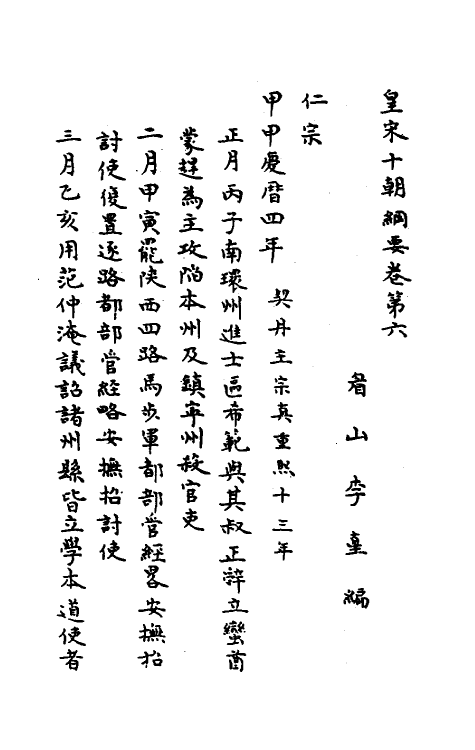 皇宋十朝綱要卷第六
眉山李𡌴編
仁宗
甲甲慶曆四年　契丹主宗真重熙十三年
正月丙子南環州進士區希範與其叔正辭立蠻酋
蒙趕為主攻陷本州及鎮寧州殺官吏
二月甲寅罷陝西四路馬步軍都部管經畧安撫招
討使復置逐路都部管經略安撫招討使
三月乙亥用范仲淹議詔諸州縣皆立學本道使者